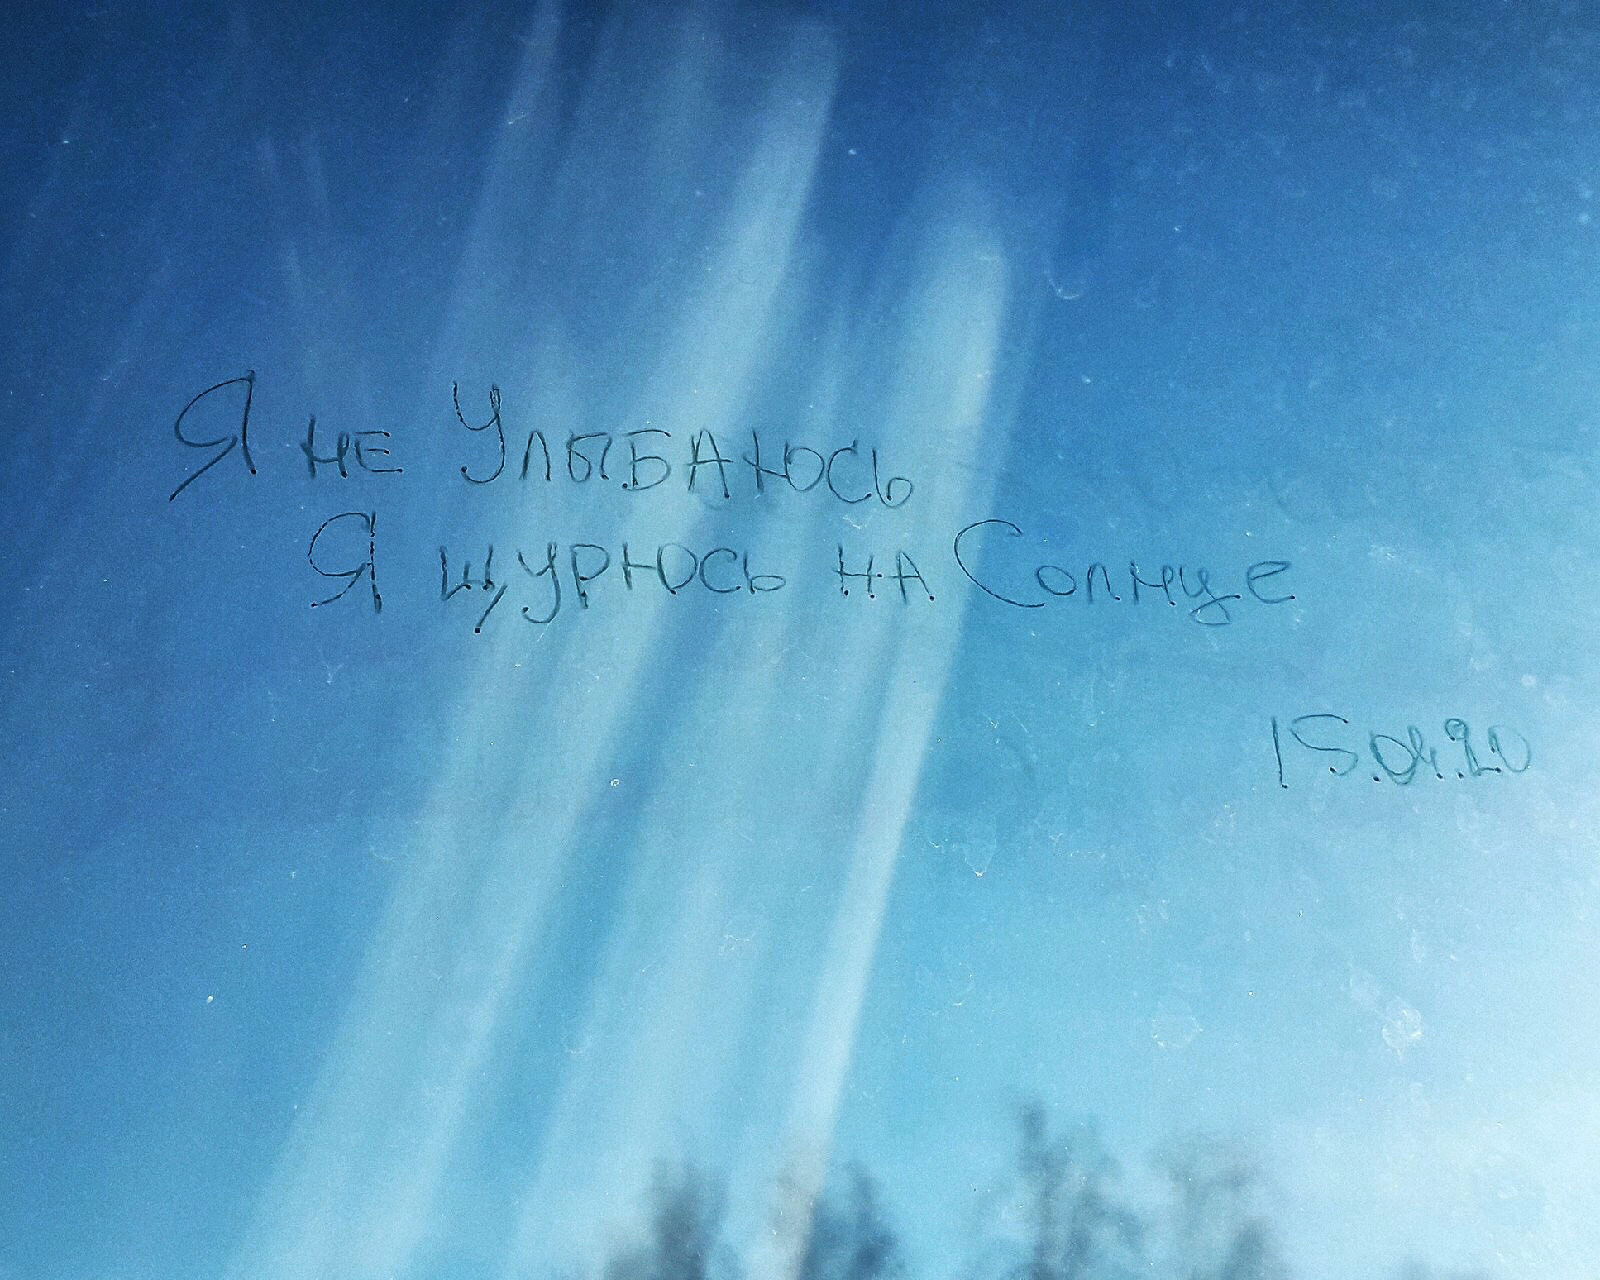 Я не Улыбаюсь
Я щурюсь на Солнце
15.04.20